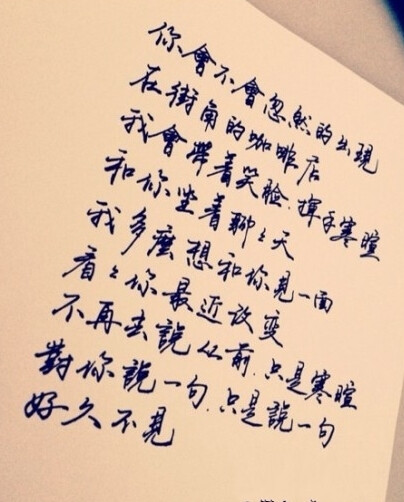 你會不會忽然的出現
在街角的咖啡店
我會帶着笑脸.揮手寒暄
和你坐着聊々天
我多麼想和你見一面
看々你最近改变
不再去說从前.只是寒暄
對你說一句.只是說一句
好久不見